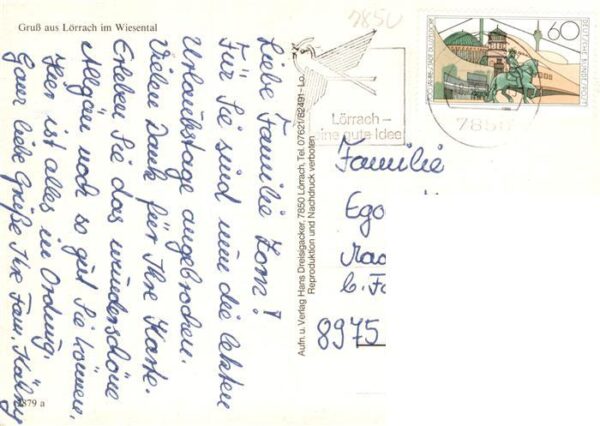 Gruß aus Lörrach im Wiesental
Liebe Familie Zorn!
Für Sie sind nun die letzten
Urlaubstage angebrochen.
Vielen Dank für Ihre Karte.
Erleben Sie das wunderschöne
Allgäu noch so gut Sie können.
Hier ist alles in Ordnung.
Ganz liebe Grüße Ihre Fam.
879 a
Aufn. u. Verlag Hans Dreisigacker, 7850 Lörrach, Tel. 07621/82491 - Lo
Reproduktion und Nachdruck verboten
7850
Lörrach –
ine gute Idee
785
60
DEUTSCHE BUNDESPOST
Familie
Ego
8975